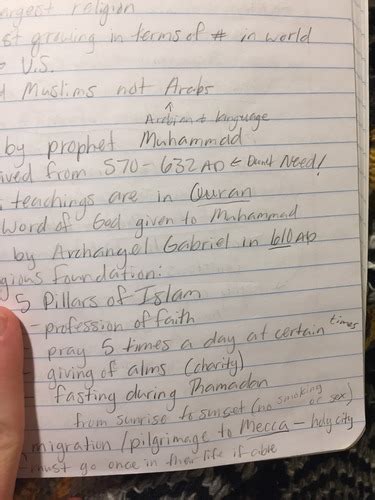 argest religion
st growing in terms of # in world
U.S.
Muslims not Arabs
↑
Arabian + language
by prophet Muhammad
ived from 570-632 AD ← Don't Need!
teachings are in Quran
Word of God given to Muhammad
by Archangel Gabriel in 610 AD
gious foundation:
5 Pillars of Islam
- profession of faith
pray 5 times a day at certain times
- giving of alms (charity)
- fasting during Rhamadan
from sunrise to sunset (no smoking or sex)
migration/pilgrimage to Mecca - holy city
- must go once in their life if able